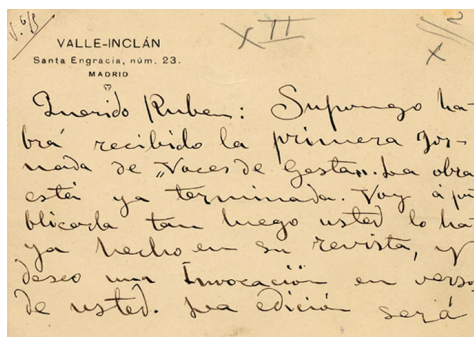 V. 6/5
XII
2
x
VALLE-INCLÁN
Santa Engracia, núm. 23.
MADRID
Querido Ruben: Supongo ha-
brá recibido la primera Jor-
nada de "Voces de Gesta". La obra
está ya terminada. Voy á pu
blicarla tan luego usted lo ha
ya hecho en su revista, y
deseo una Invocación en verso
de usted. La edición será